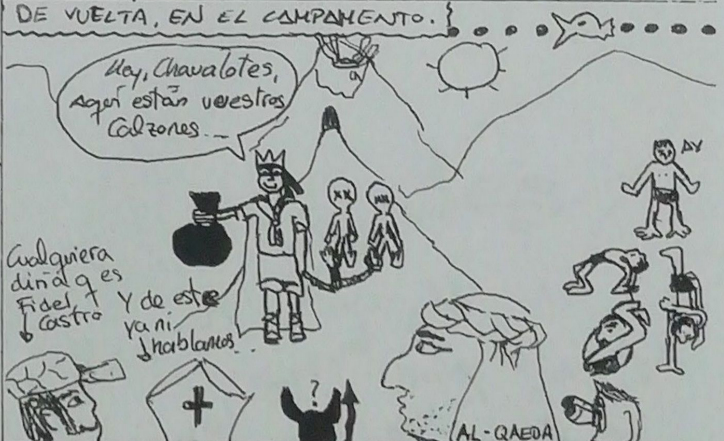 DE VUELTA, EN EL CAMPAMENTO.
Hey, Chavalotes,
Aquí están vuestros
Calzones...
Cualquiera
diría q es
Fidel
Castro
Y de este
ya ni
hablamos...
?
AY
AL-QAEDA